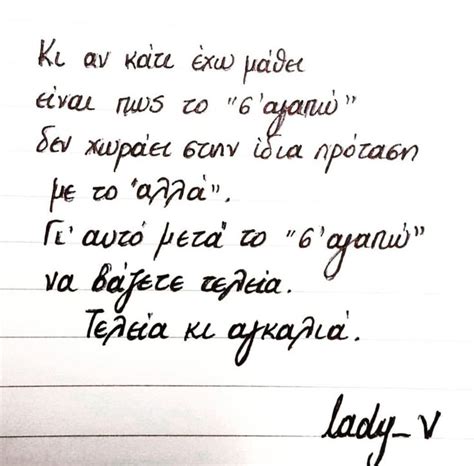 Κι αν κάτι έχω μάθει
είναι πως το "σ'αγαπώ"
δεν χωράει στην ίδια πρόταση
με το "αλλά".
Γι' αυτό μετά το "σ'αγαπώ"
να βάζετε τελεία.
Τελεία κι αγκαλιά.
lady_v